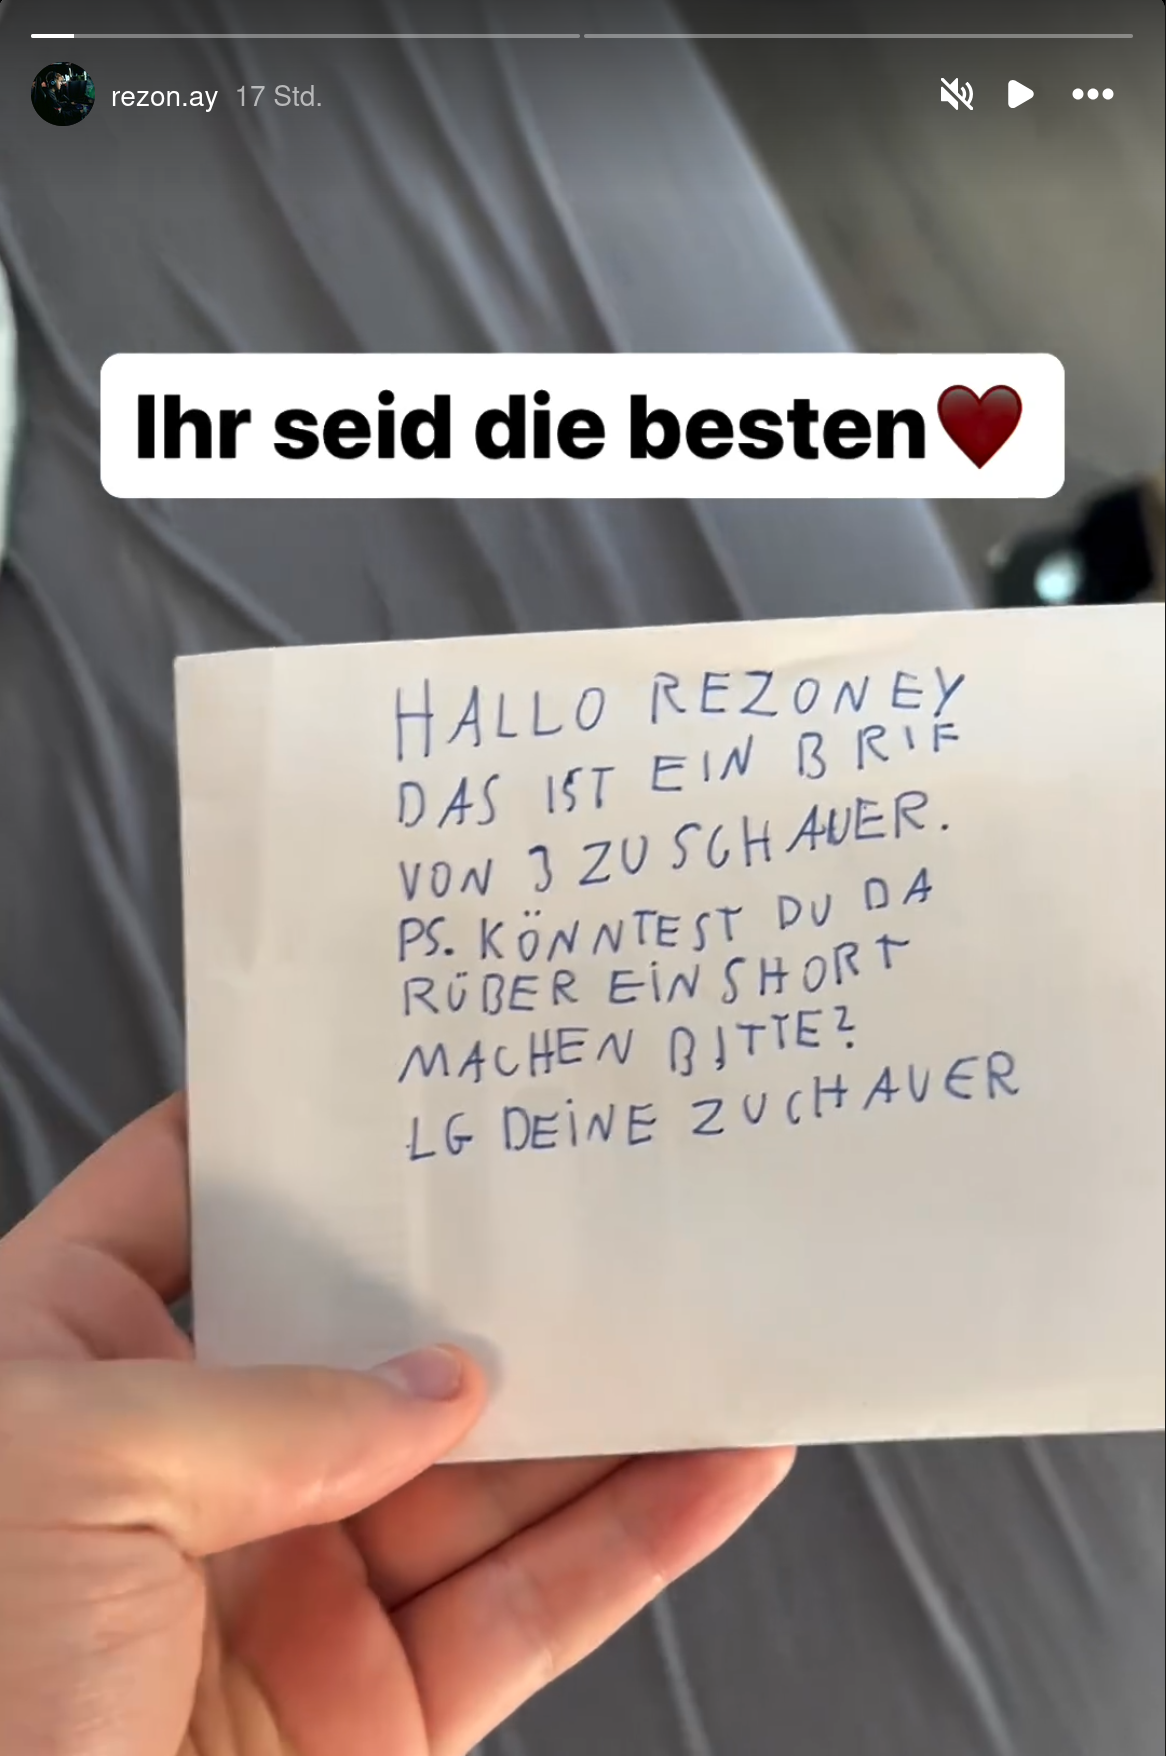 rezon.ay 17 Std.
Ihr seid die besten
HALLO REZONEY
DAS IST EIN BRIF
VON 3 ZUSCHAUER.
PS. KÖNNTEST DU DA
RÜBER EIN SHORT
MACHEN BITTE?
LG DEINE ZUCHAUER